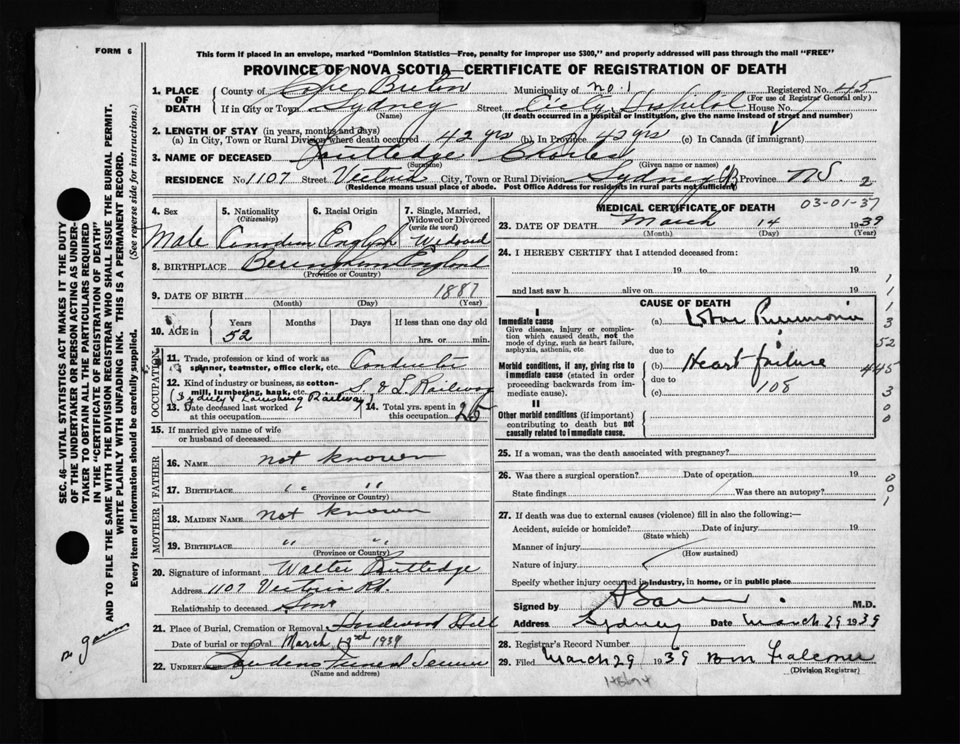 FORM 6
This form if placed in an envelope, marked "Dominion Statistics—Free, penalty for improper use $300," and properly addressed will pass through the mail "FREE"
PROVINCE OF NOVA SCOTIA—CERTIFICATE OF REGISTRATION OF DEATH
1. PLACE OF DEATH
County of Cape Breton Municipality of No. 1 Registered No. 45
(For use of Registrar General only)
If in City or Town Sydney Street City Hospital House No.
(Name) (If death occurred in a hospital or institution, give the name instead of street and number)
2. LENGTH OF STAY (in years, months and days)
(a) In City, Town or Rural Division where death occurred 42 yrs (b) In Province 42 yrs (c) In Canada (if immigrant)
3. NAME OF DECEASED Routledge Charles
(Surname) (Given name or names)
RESIDENCE No. 1107 Street Victoria City, Town or Rural Division Sydney CB Province N.S. 2
(Residence means usual place of abode. Post Office Address for residents in rural parts not sufficient)
4. Sex Male
5. Nationality (Citizenship) Canadian
6. Racial Origin English
7. Single, Married, Widowed or Divorced (write the word) Widowed
8. BIRTHPLACE England
(Province or Country)
9. DATE OF BIRTH 1887
(Month) (Day) (Year)
10. AGE in Years Months Days If less than one day old
52 hrs. or min.
OCCUPATION
11. Trade, profession or kind of work as spinner, teamster, office clerk, etc. Conductor
12. Kind of industry or business, as cotton-mill, lumbering, bank, etc. S. & L. Railway
(Sydney & Louisburg Railway)
13. Date deceased last worked at this occupation
14. Total yrs. spent in this occupation 25
15. If married give name of wife or husband of deceased
FATHER
16. NAME not known
17. BIRTHPLACE " "
(Province or Country)
MOTHER
18. MAIDEN NAME not known
19. BIRTHPLACE " "
(Province or Country)
20. Signature of informant Walter Rutledge
Address 1107 Victoria Rd.
Relationship to deceased Son
21. Place of Burial, Cremation or Removal Hardwood Hill
Date of burial or removal March 1939
22. UNDERTAKER Funeral Service
(Name and address)
MEDICAL CERTIFICATE OF DEATH 03-01-37
23. DATE OF DEATH March 14 1939
(Month) (Day) (Year)
24. I HEREBY CERTIFY that I attended deceased from:
19 to 19
and last saw h alive on 19
CAUSE OF DEATH
I
Immediate cause (a) Lobar Pneumonia
Give disease, injury or complication which caused death, not the mode of dying, such as heart failure, asphyxia, asthenia, etc.
due to
Morbid conditions, if any, giving rise to immediate cause (stated in order proceeding backwards from immediate cause).
(b) Heart failure
due to 108
(c)
II
Other morbid conditions (if important) contributing to death but not causally related to immediate cause.
1
1
3
52
445
3
0
0
25. If a woman, was the death associated with pregnancy?
26. Was there a surgical operation? Date of operation 19
State findings Was there an autopsy?
0
0
1
27. If death was due to external causes (violence) fill in also the following:—
Accident, suicide or homicide? Date of injury 19
(State which)
Manner of injury
(How sustained)
Nature of injury
Specify whether injury occurred in industry, in home, or in public place
Signed by M.D.
Address Sydney Date March 29 1939
28. Registrar's Record Number
29. Filed March 29 1939 Wm Falconer
(Division Registrar)
SEC. 46—VITAL STATISTICS ACT MAKES IT THE DUTY
OF THE UNDERTAKER OR PERSON ACTING AS UNDERTAKER TO OBTAIN ALL THE PARTICULARS REQUIRED
IN THE "CERTIFICATE OF REGISTRATION OF DEATH"
AND TO FILE THE SAME WITH THE DIVISION REGISTRAR WHO SHALL ISSUE THE BURIAL PERMIT.
WRITE PLAINLY WITH UNFADING INK. THIS IS A PERMANENT RECORD.
Every item of information should be carefully supplied. (See reverse side for instructions.)